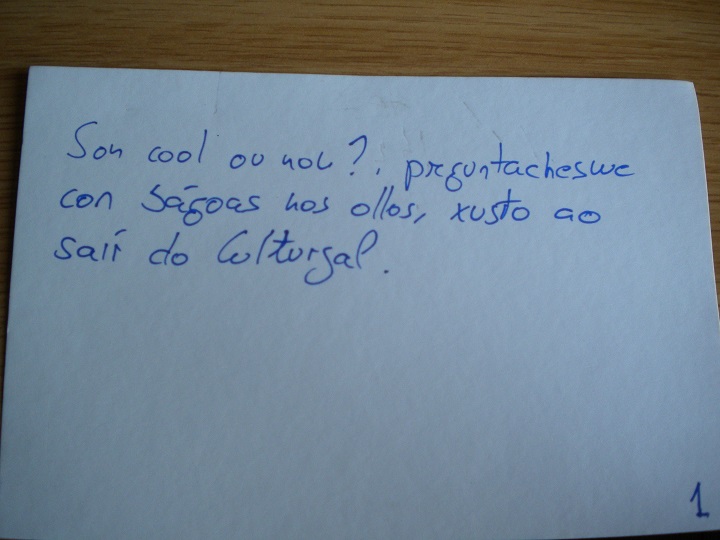 Son cool ou non?, preguntachesme
con bágoas nos ollos, xusto ao
saír do Culturgal.
1